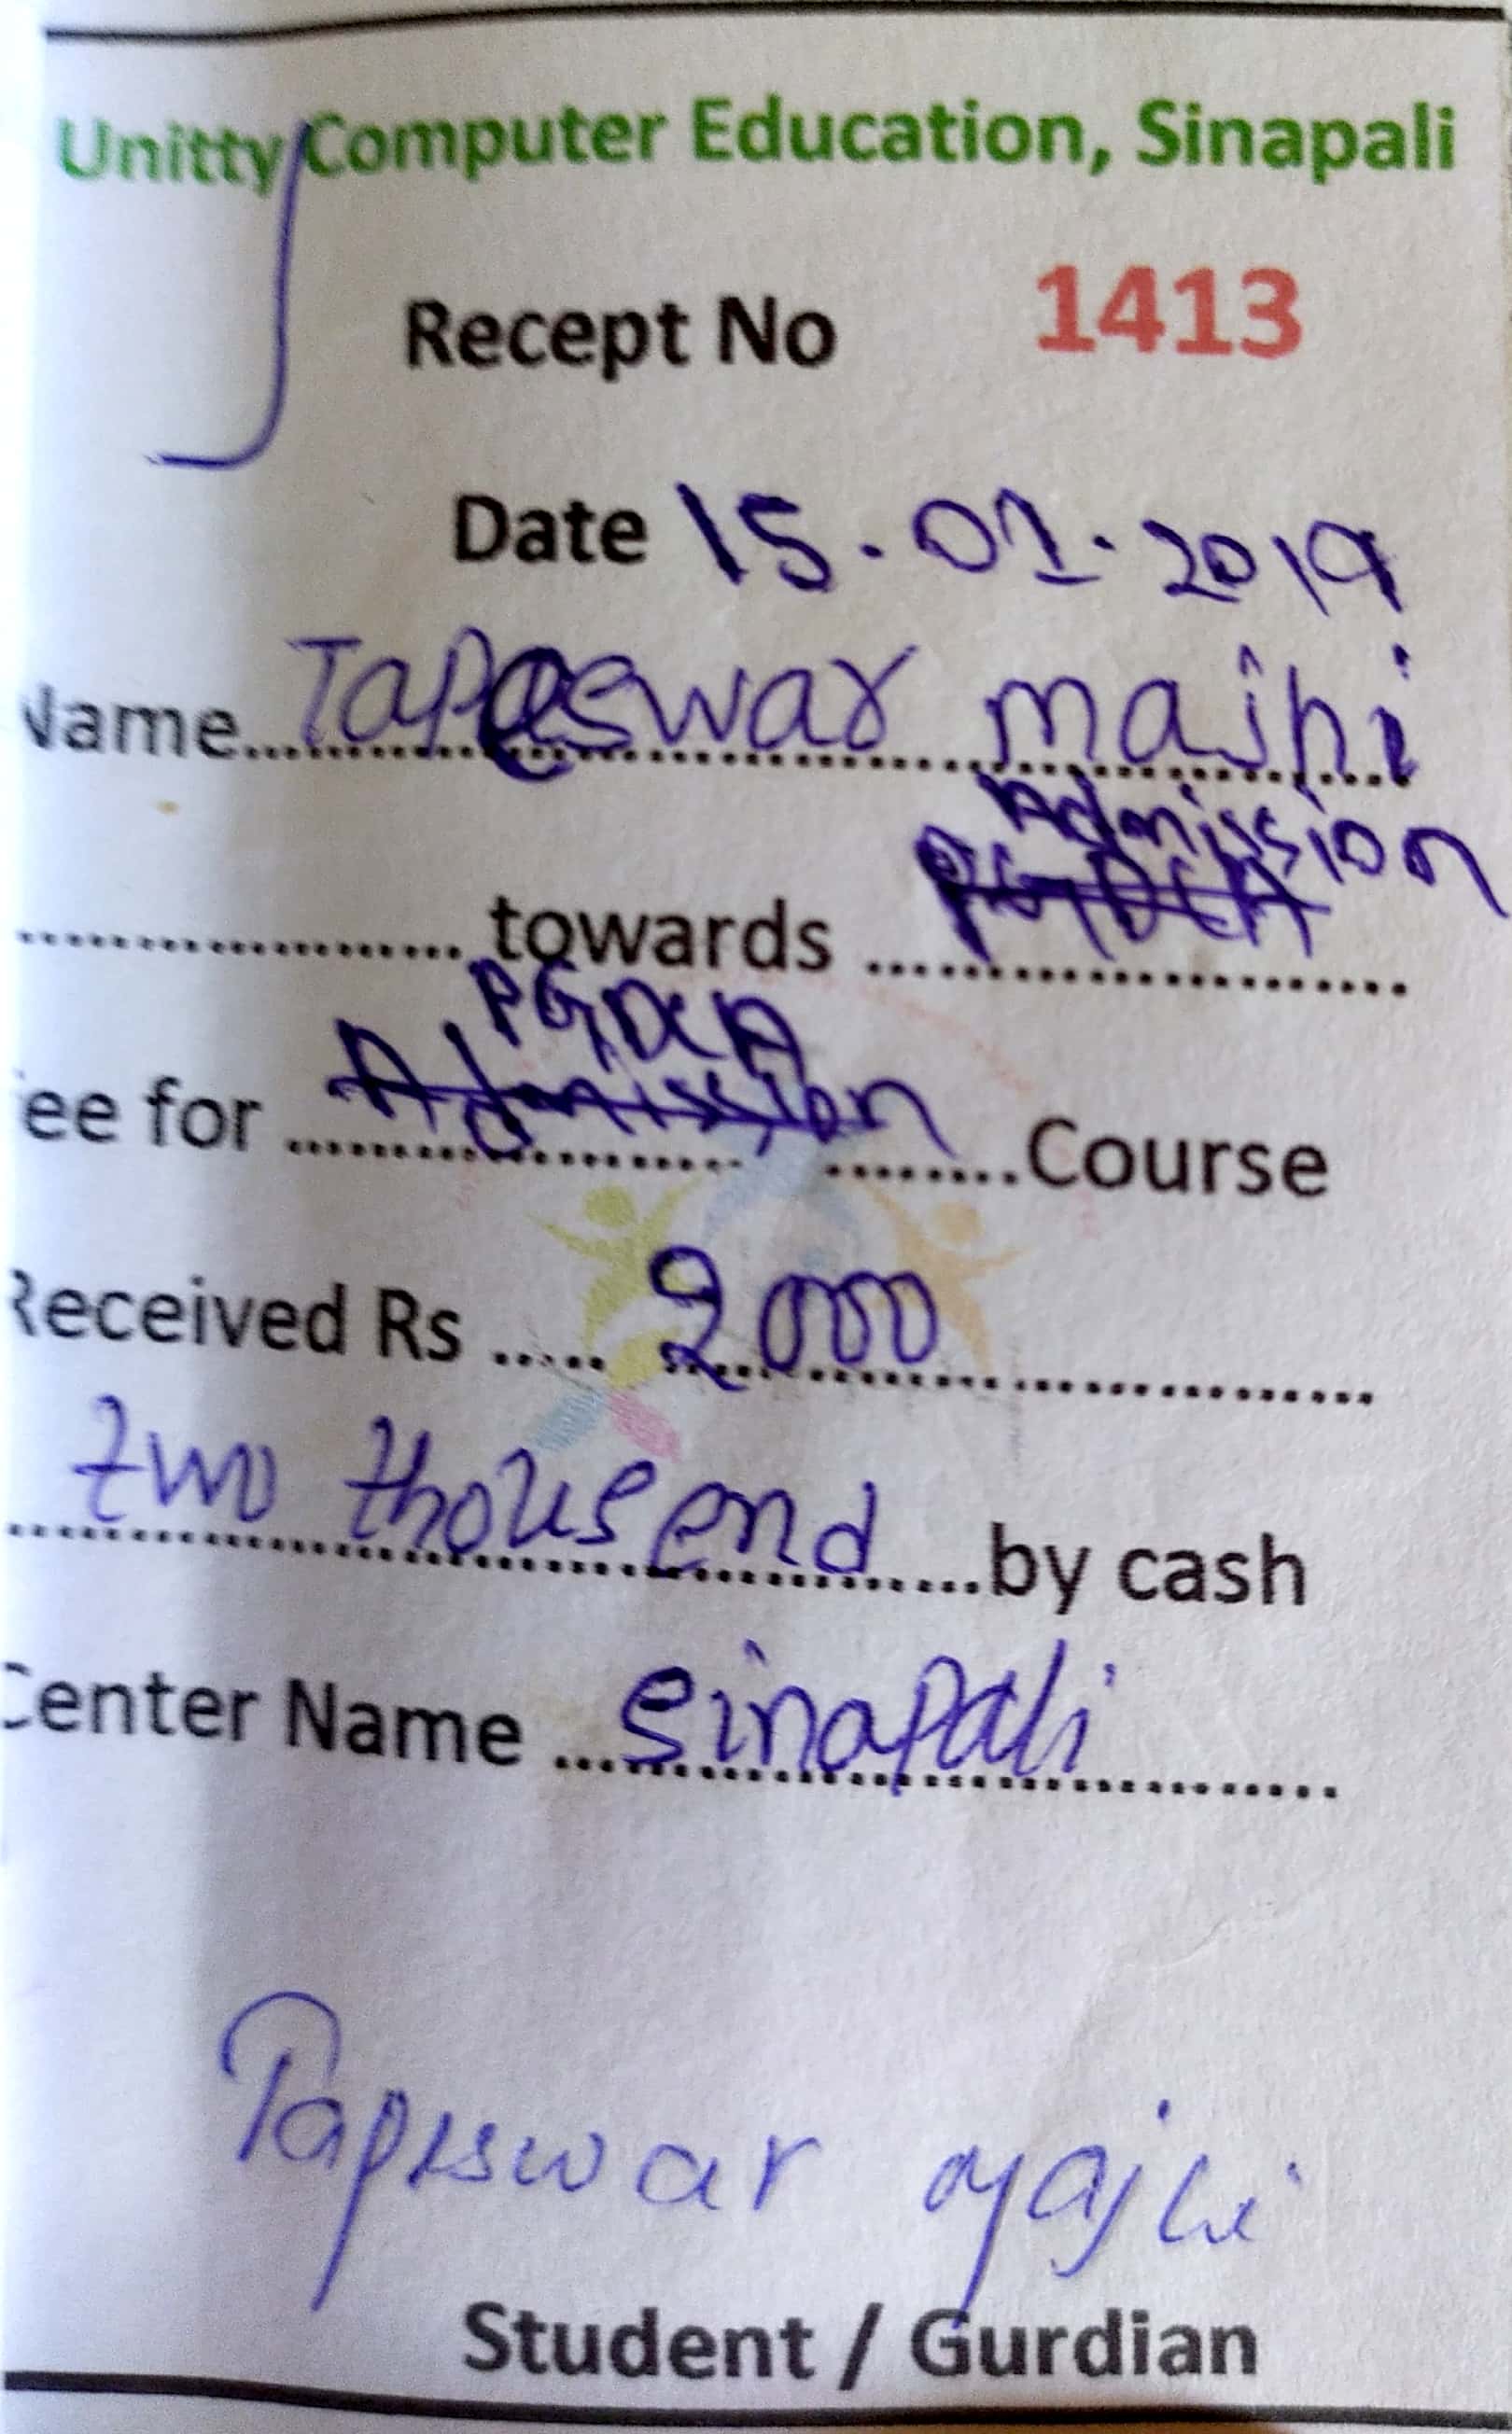 Unitty Computer Education, Sinapali
Recept No 1413
Date 15.01.2019
Name....Tapeswar majhi
Admission
........ towards PGDCA ........
PGDCA
ee for Admission ........Course
Received Rs ..... 2000 ........
two thousend ......by cash
Center Name ...Sinapali........
Tapeswar Majhi
Student / Gurdian